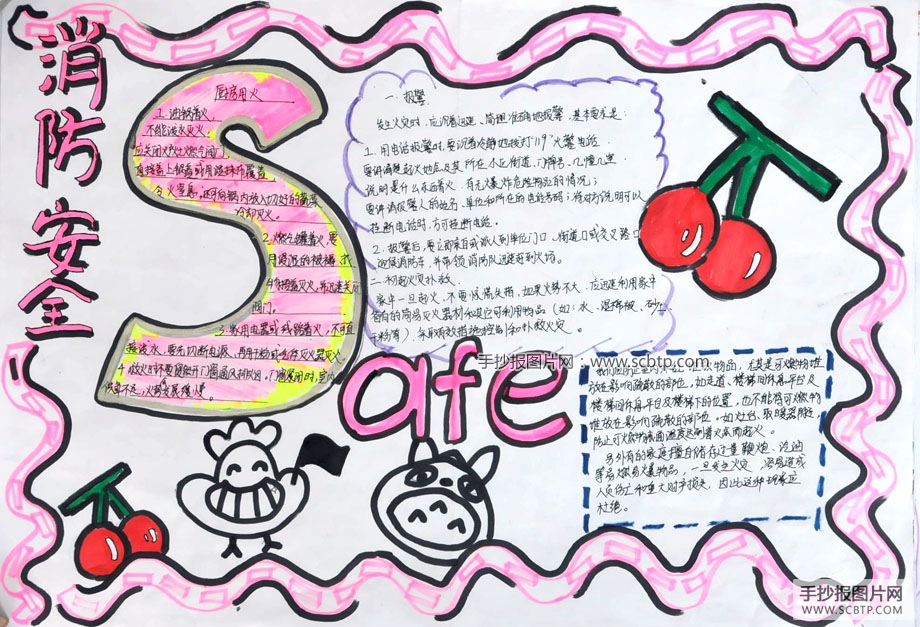 消防安全
Safe
厨房用火
1.油锅着火,
不能泼水灭火,
应关闭炉灶燃气阀门,
直接盖上锅盖或用湿抹布覆盖,
令火窒息,还可向锅内放入切好的蔬菜
冷却灭火。
2.燃气罐着火,要
用浸湿的被褥、
捂盖灭火,并迅速关闭
阀门。
3.家用电器或线路着火,不可直
接泼水,要先切断电源,再用干粉或气体灭火器灭火。
4.救火时不要贸然开门窗
一、报警
发生火灾时,应沉着迅速、简理准确地报警,基本要求是:
1.用电话报警时要沉着冷静地拨打"119"火警电话
要讲清楚起火地点及其所在小区街道、门牌号、几幢几室
说明是什么东西着火、有无爆炸危险物品的情况;
要讲清报警人的姓名、单位和所在的电话号码;待对方说明可以
挂断电话时,方可挂断电话。
2.报警后,要立即亲自或派人到单位门口、街道口或交叉路口
迎候消防车,并带领消防队迅速赶到火场。
二、初起火灾扑救
家中一旦起火,不要惊慌失措,如果火势不大,应迅速利用家中
备有的简易灭火器材和其它可利用物品(如:水、湿棉被、砂土、
干粉等),采取有效措施控制和扑救火灾。
物品,尤其是可燃物堆
放在影响疏散的部位,如走道、楼梯间休息平台及
楼梯间休息平台及楼梯下的位置,也不能将可燃物
堆放在影响疏散的部位。如灶台、取暖器附近,
防止可燃物
另外有的家庭擅自储存过量鞭炮、汽油
等易燃易爆物品,一旦发生火灾,容易造成
人员伤亡和重大财产损失,因此这种现象应
杜绝。
手抄报图片网:www.scbtp.com
手抄报图片网
WWW.SCBTP.COM